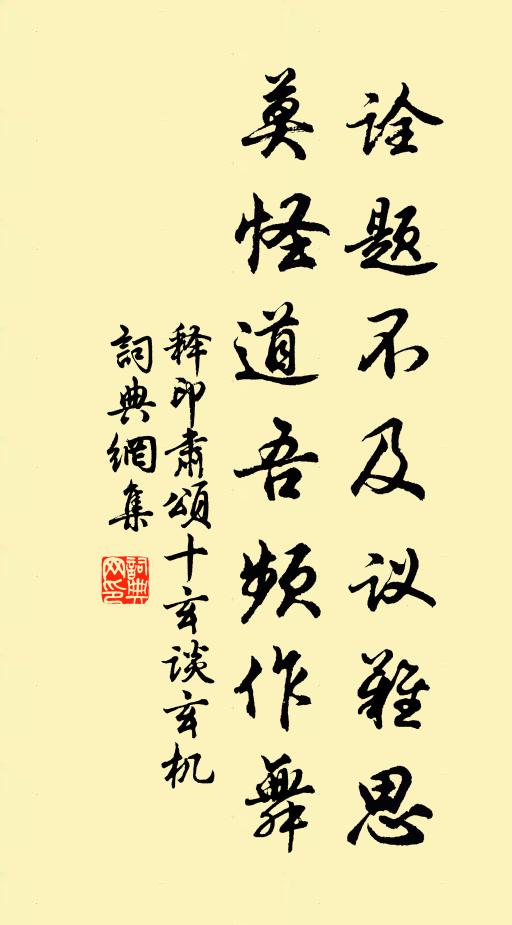 诠题不及议难思
莫怪道吾频作舞
释印肃颂十玄谈玄机
詞典網集
詞典网印